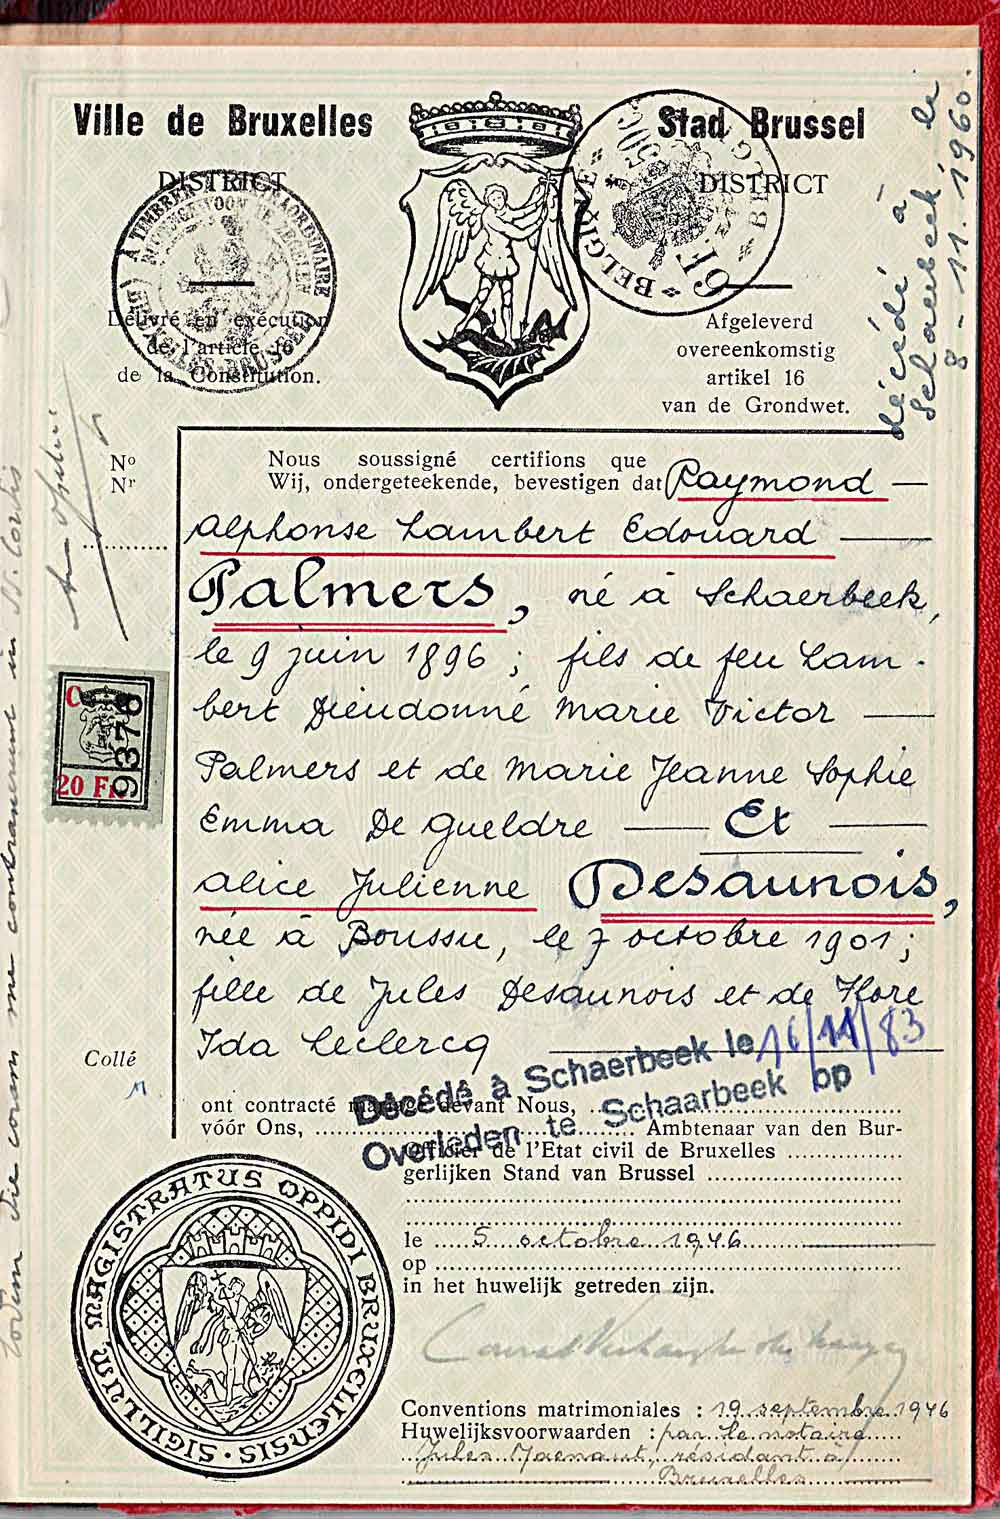 Ville de Bruxelles
Stad Brussel
DISTRICT
DISTRICT
À TIMBRER EXTRAORDINAIRE
BELGIQUE BELGIË
Délivré en exécution
de l'article 16
de la Constitution.
Afgeleverd
overeenkomstig
artikel 16
van de Grondwet.
décédé à
Schaerbeek le
8-11.1960.
Nº
Nr
Nous soussigné certifions que
Wij, ondergeteekende, bevestigen dat Raymond
Alphonse Lambert Edouard
Palmers, né à Schaerbeek,
le 9 juin 1896; fils de feu Lam-
bert Dieudonné Marie Victor
Palmers et de Marie Jeanne Sophie
Emma De Gueldre Et
Alice Julienne Desaunois,
née à Boussu, le 7 octobre 1901;
fille de Jules Desaunois et de Flore
Ida Leclercq
C
9378
20 Fr.
Collé
Décédé à Schaerbeek le 16/11/83
Overleden te Schaarbeek op
ont contracté mariage devant Nous,
vóór Ons, Ambtenaar van den Bur-
Officier de l'Etat civil de Bruxelles
gerlijken Stand van Brussel
le 5 octobre 1946
op
in het huwelijk getreden zijn.
SIGILLUM MAGISTRATUS OPPIDI BRUXELLENSIS
Conventions matrimoniales : 19 septembre 1946
Huwelijksvoorwaarden : par le notaire
Jules résidant à
Bruxelles